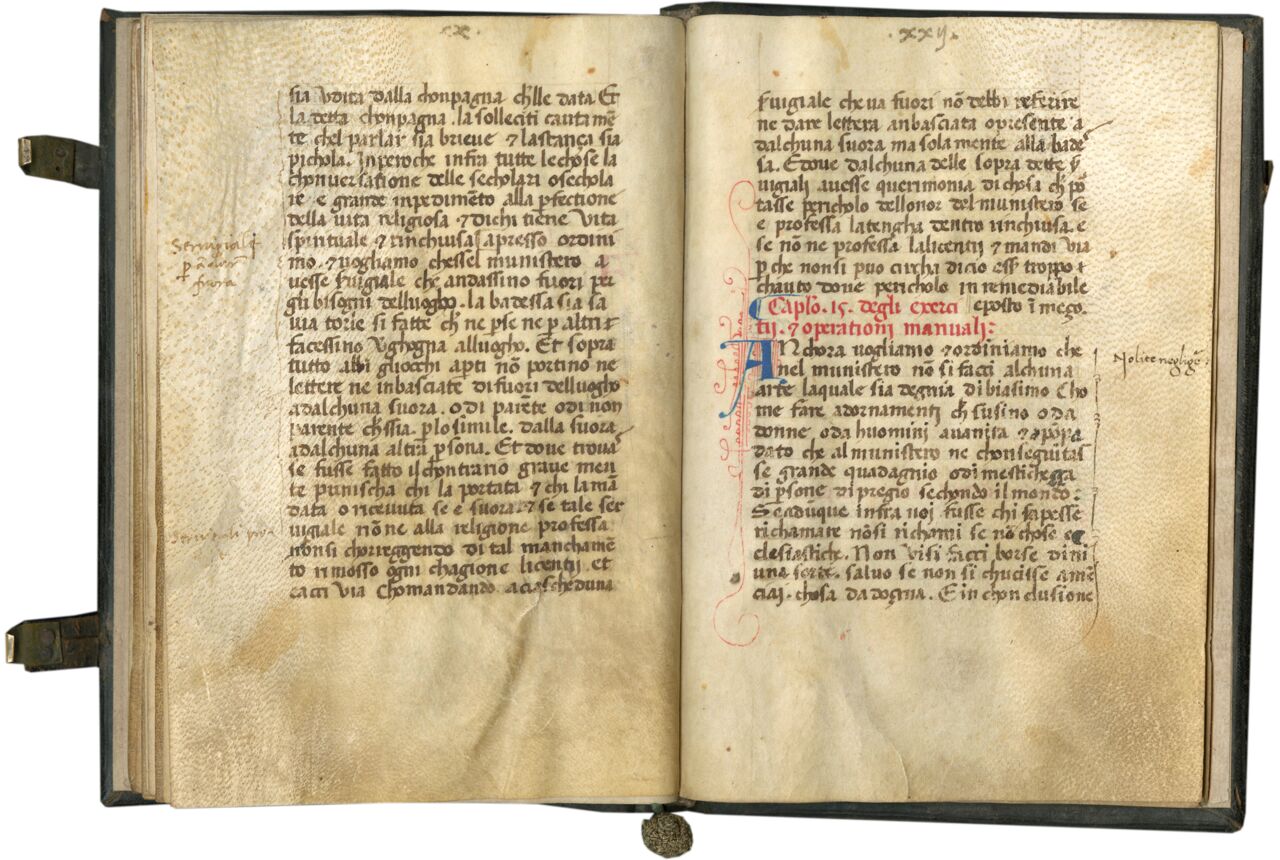 .xx.
sia vdita dalla chonpagna ch̄lle data Et
la detta chonpagna .la solleciti cauta mē
te chel parlar sia brieue & lastança sia
pichola. Inperoche infra tutte lechose la
chonuersatione delle secholari osechola
ri e grande inpedimēto alla pfectione
della uita religiosa & dichi tiene Vita
spirituale & rinchiusa apresso ordini
mo. & uogliamo chessel munistero a
uesse fuigiale che andassino fuori per
gli bisogni delluogho. la badessa sia sa
uia torie si fatte ch̄ ne pse ne p altri
facessino vghogna alluogho. Et sopra
tutto abbi gliocchi apti nō portino ne
lettere ne inbasciate di fuori delluogho
adalchuna suora. odi parēte odi non
parente ch̄ssia. plo simile. dalla suora
adalchuna altra psona. Et doue troua
se fusse fatto il chontrario graue men
te punischa chi la portata & chi la mā
data o riceuuta se e suora. & se tale ser
uigiale nōne alla religione professa
nonsi chorreggendo di tal manchamē
to rimosso ogni chagione licentij et
cacci via Chomandando aciascheduna
.xxij.
fuigiale che ua fuori nō debbi referire
ne dare lettera anbasciata opresente a
dalchuna suora ma sola mente alla bade
sa. Edoue dalchuna delle sopra dette s̄
uigiali auesse querimonia dichosa ch̄ po
tasse pericholo dellonor del munistero se
e professa latengha dentro rinchiusa. e
se nō ne professa lalicentij & mandi via
p che nonsi puo circha dicio ess̄ troppo
chauto doue pericholo inremediabile
eposto ī meço.
Caplo .15. degli exerci
tij. & operationi manuali:
ANchora uogliamo & ordiniamo che
nel munistero nō si facci alchuna
arte laquale sia degnia di biasimo Cho
me fare adornamenti ch̄ susino oda
donne oda huomini
dato che al munistero ne chonseguitas
se grande guadagnio odimestichegga
di psone di pregio sechondo il mondo:
Seaduque infra uoi fusse chi sapesse
richamare nōsi richami se nō chose ec
clesiastiche. Non visi facci borse di ni
una sorte. saluo se non si chucisse
chosa . E in chon clusione